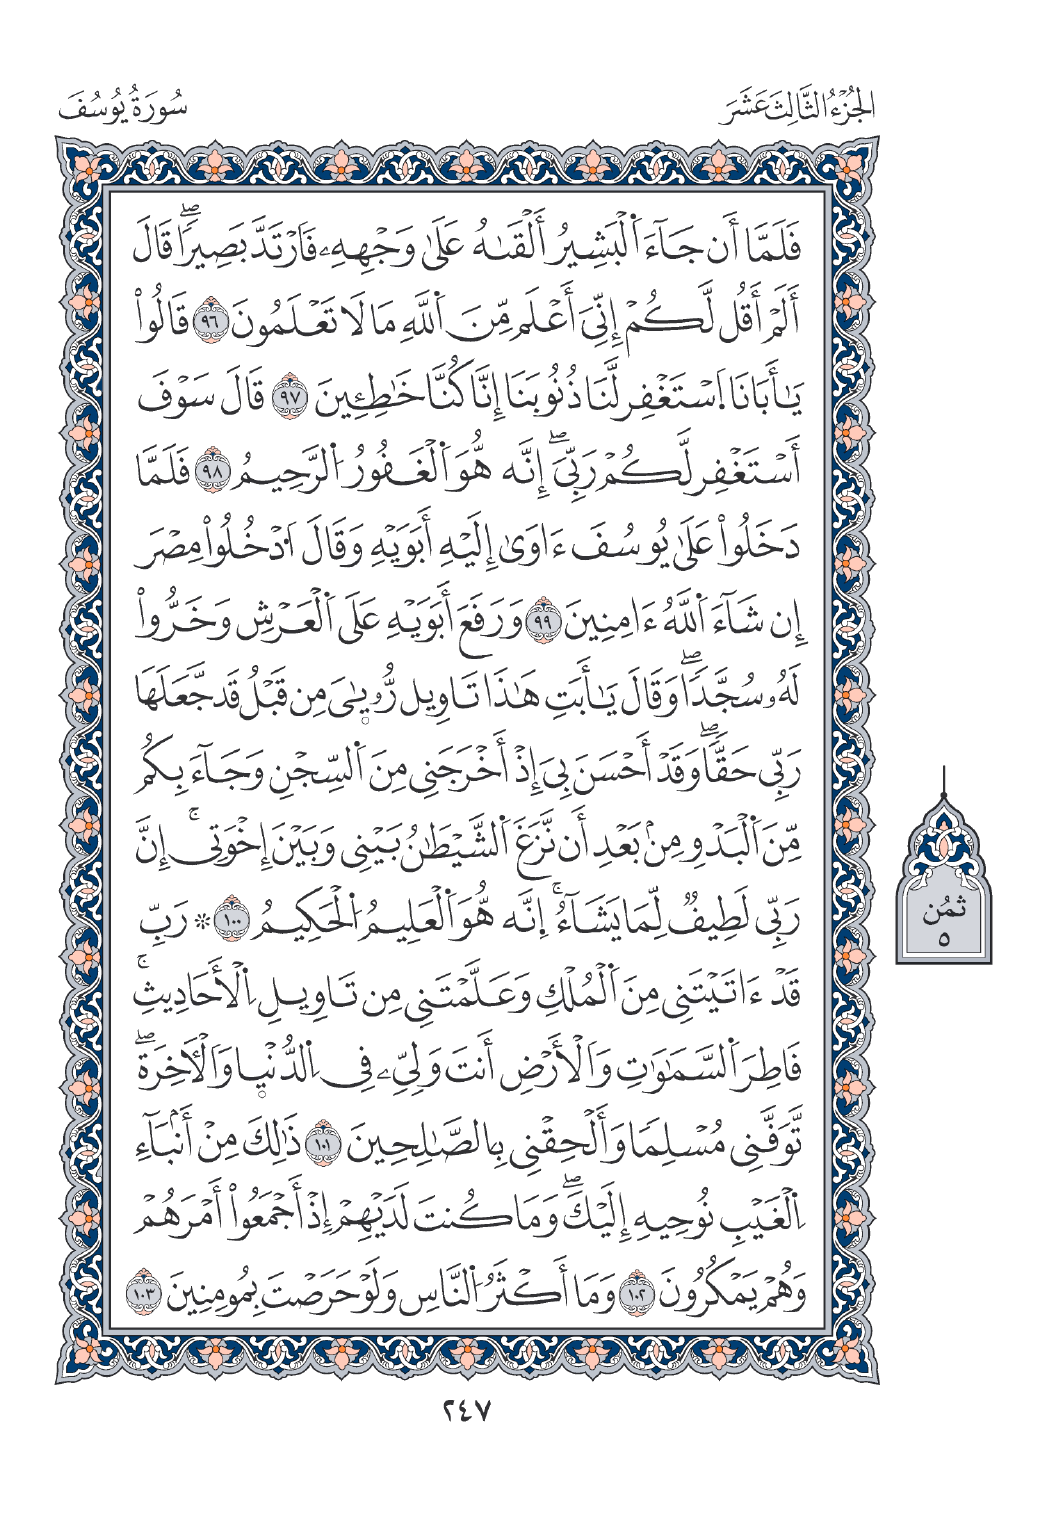 الجُزْءُ الثَّالِثَ عَشَرَ
سُورَةُ يُوسُفَ
فَلَمَّا أَن جَآءَ اَ۬لْبَشِيرُ أَلْقَىٰهُ عَلَىٰ وَجْهِهِۦ فَارْتَدَّ بَصِيراًۖ قَالَ
أَلَمْ أَقُل لَّكُمْ إِنِّيَ أَعْلَم مِّنَ اَ۬للَّهِ مَا لَا تَعْلَمُونَ ٩٦ قَالُواْ
يَٰأَبَانَا اَ۪سْتَغْفِر لَّنَا ذُنُوبَنَا إِنَّا كُنَّا خَٰطِـِٕينَ ٩٧ قَالَ سَوْفَ
أَسْتَغْفِر لَّكُمْ رَبِّيَۖ إِنَّه هُّوَ اَ۬لْغَفُورُ اُ۬لرَّحِيمُ ٩٨ فَلَمَّا
دَخَلُواْ عَلَىٰ يُوسُفَ ءَاوَىٰ إِلَيْهِ أَبَوَيْهِ وَقَالَ اَ۟دْخُلُواْ مِصْرَ
إِن شَآءَ اَ۬للَّهُ ءَامِنِينَ ٩٩ وَرَفَعَ أَبَوَيْهِ عَلَى اَ۬لْعَرْشِ وَخَرُّواْ
لَهُۥ سُجَّداٗۖ وَقَالَ يَٰأَبَتِ هَٰذَا تَاوِيل رُّويٜىٰيَ مِن قَبْلُ قَد جَّعَلَهَا
رَبِّي حَقّاٗۖ وَقَدْ أَحْسَنَ بِيَ إِذْ أَخْرَجَنِي مِنَ اَ۬لسِّجْنِ وَجَآءَ بِكُم
مِّنَ اَ۬لْبَدْوِ مِنۢ بَعْدِ أَن نَّزَغَ اَ۬لشَّيْطَٰنُ بَيْنِي وَبَيْنَ إِخْوَتِيۚ إِنَّ
رَبِّي لَطِيفٞ لِّمَا يَشَآءُۚ اِنَّه هُّوَ اَ۬لْعَلِيمُ اُ۬لْحَكِيمُ ١٠٠ ۞ رَبِّ
قَدْ ءَاتَيْتَنِي مِنَ اَ۬لْمُلْكِ وَعَلَّمْتَنِي مِن تَاوِيلِ اِ۬لْأَحَادِيثِۚ
فَاطِرَ اَ۬لسَّمَٰوَٰتِ وَالْأَرْضِ أَنتَ وَلِيِّۦ فِي اِ۬لدُّنْيٜا وَالْأٓخِرَةِۖ
تَّوَفَّنِي مُسْلِماٗ وَأَلْحِقْنِي بِالصَّٰلِحِينَ ١٠١ ذَٰلِكَ مِنْ أَنۢبَآءِ
اِ۬لْغَيْبِ نُوحِيهِ إِلَيْكَۖ وَمَا كُنتَ لَدَيْهِمْ إِذْ أَجْمَعُواْ أَمْرَهُمْ
وَهُمْ يَمْكُرُونَ ١٠٢ وَمَا أَكْثَرُ اُ۬لنَّاسِ وَلَوْ حَرَصْتَ بِمُومِنِينَ ١٠٣
ثمُن
٥
٢٤٧